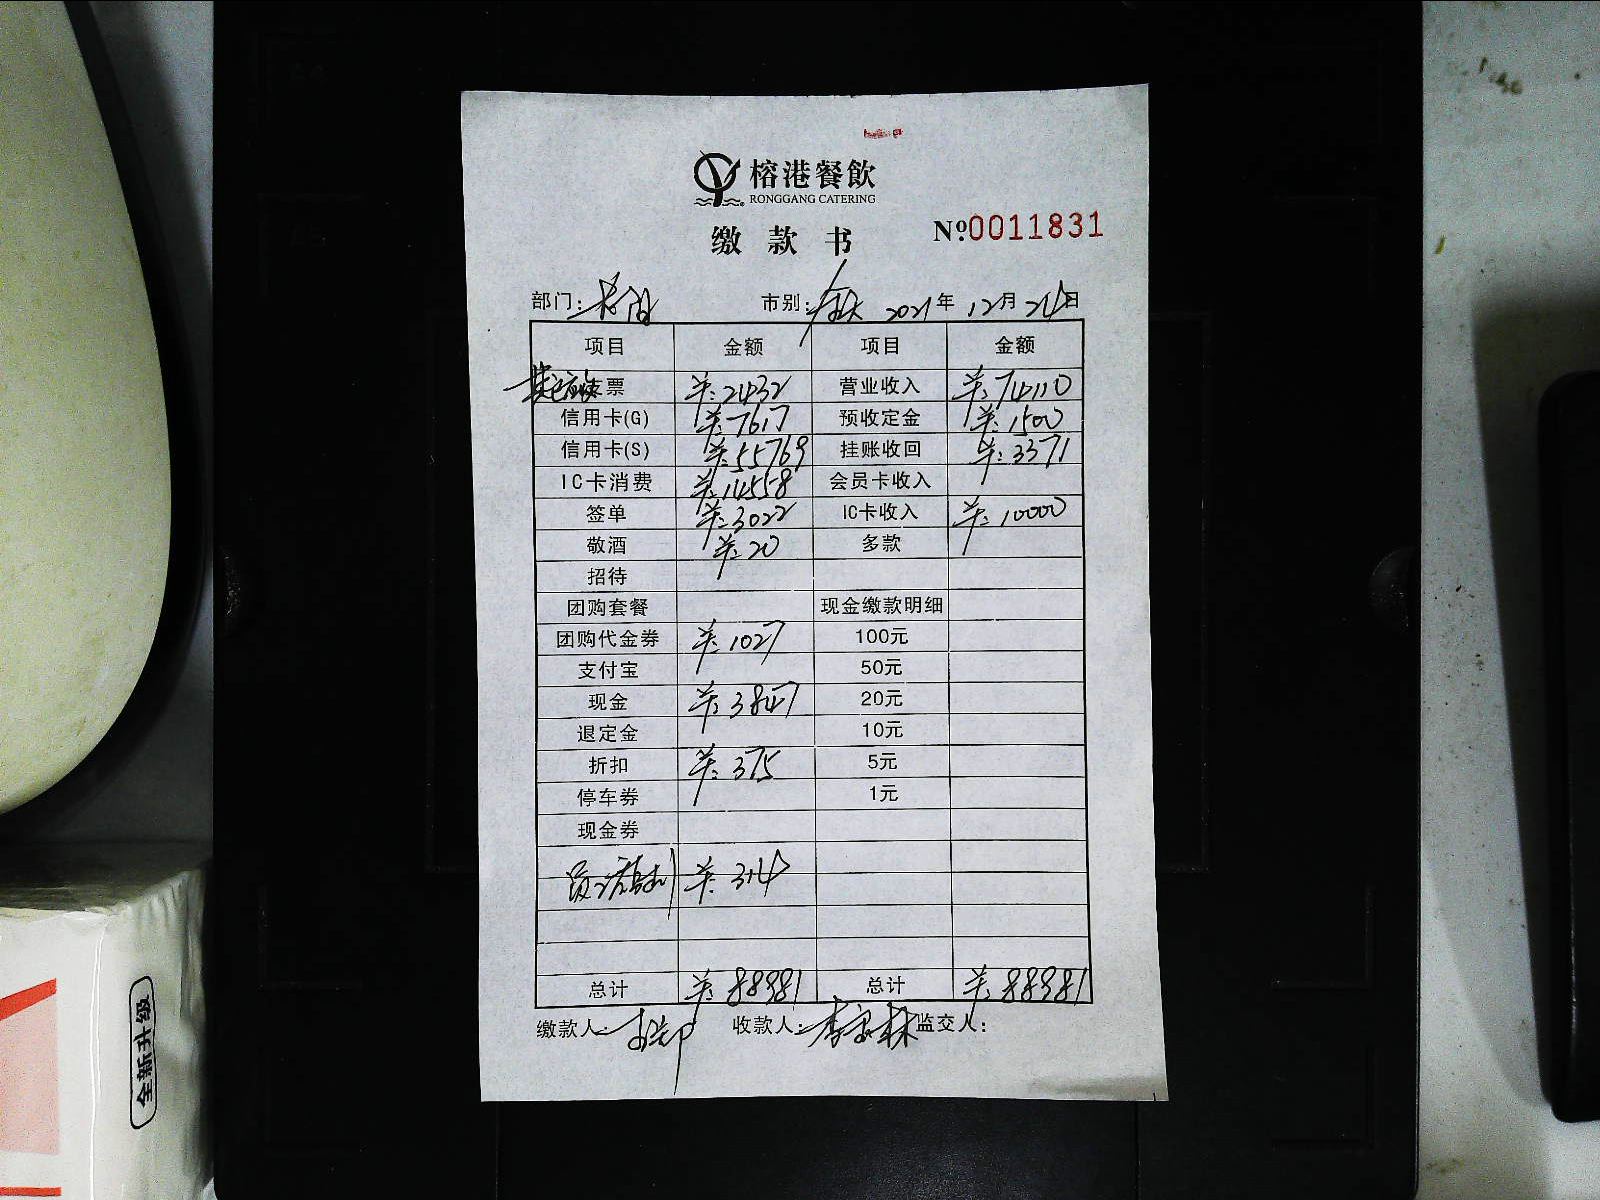 榕港餐飲
RONGGANG CATERING
缴款书 №0011831
部门: 市别: 全天 2021年12月24日
项目 金额 项目 金额
支票 ¥:2432 营业收入 ¥:74110
信用卡(G) ¥:7617 预收定金 ¥:1500
信用卡(S) ¥:55769 挂账收回 ¥:3371
IC卡消费 ¥:14558 会员卡收入
签单 ¥:3022 IC卡收入 ¥:10000
敬酒 ¥:20 多款
招待
团购套餐 现金缴款明细
团购代金券 ¥:1027 100元
支付宝 50元
现金 ¥:3847 20元
退定金 10元
折扣 ¥:375 5元
停车券 1元
现金券
¥:314
总计 ¥:88981 总计 ¥:88981
缴款人: 收款人: 监交人:
全新升级